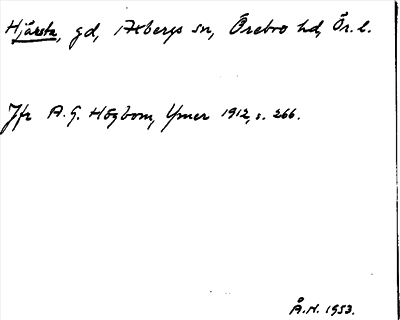 Hjärsta, gd, Axbergs sn, Örebro hd, Ör. l.
Jfr A. G. Högbom, Ymer 1912, s. 266.
Å.H. 1953.